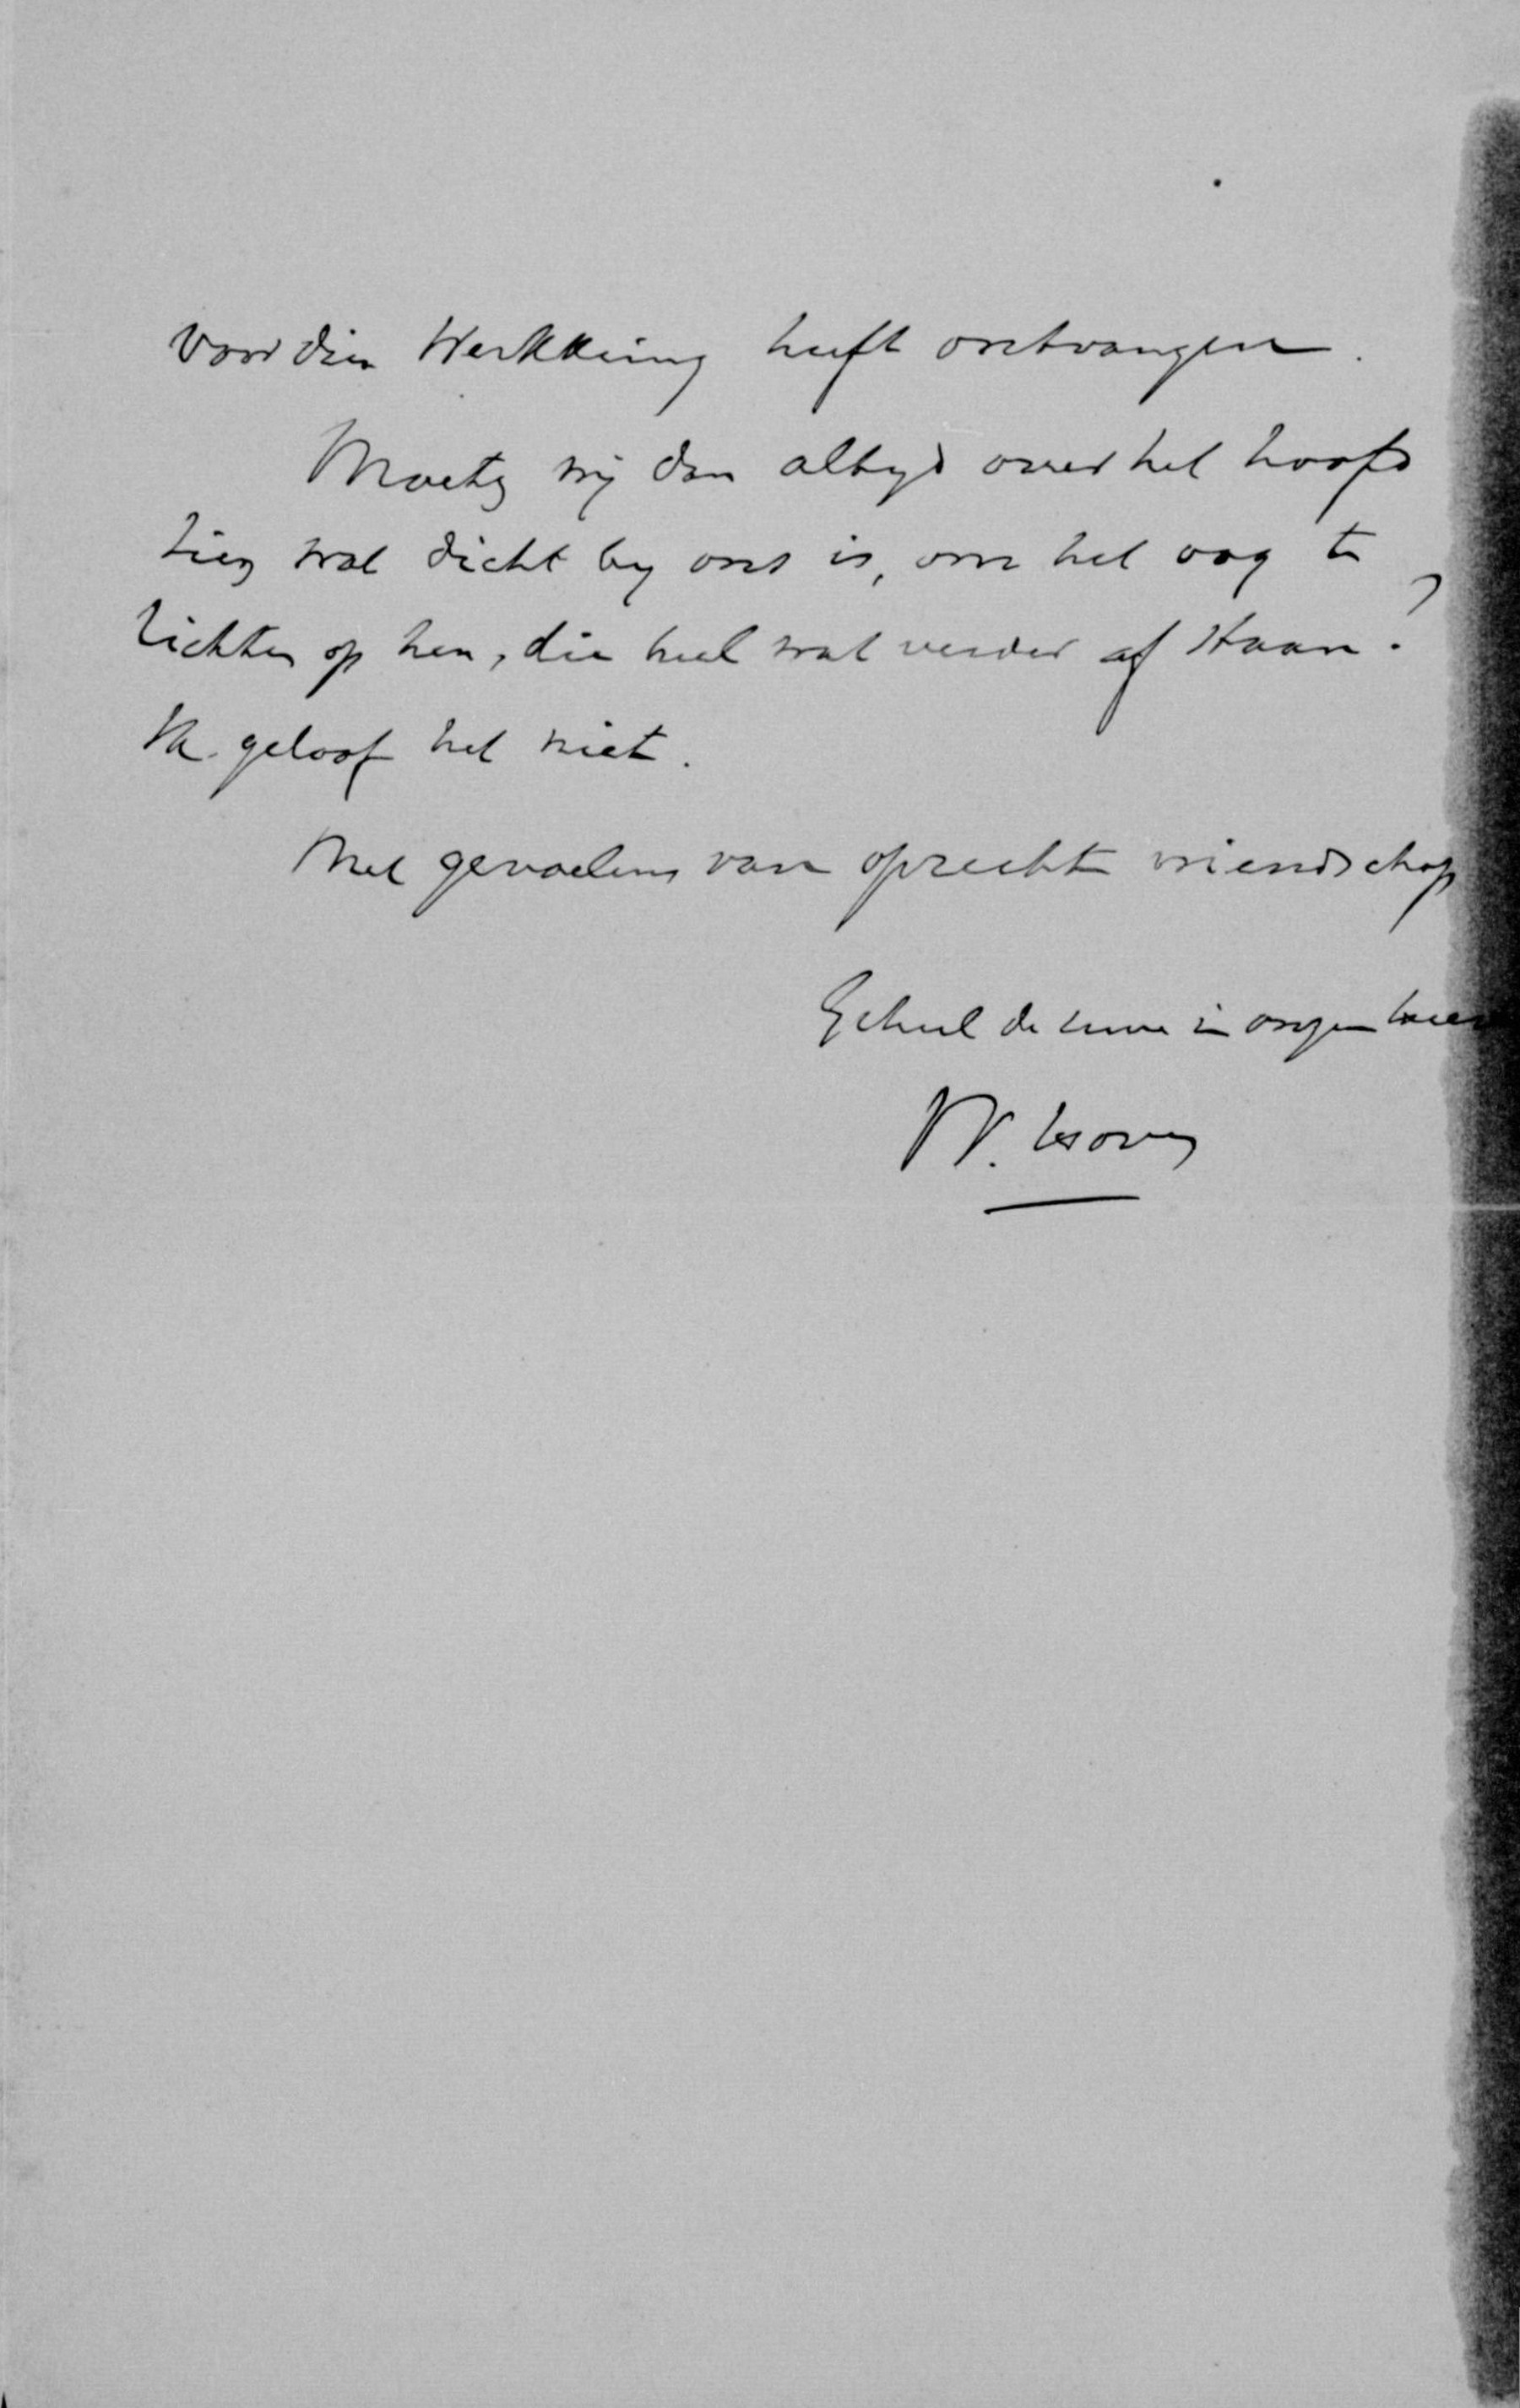 voor dien Werkkring heeft ontvangen.
Moeten wij dan altijd over het hoofd
zien wat dicht bij ons is, om het oog te
richten op hen, die heel wat verder af staan?
Ik geloof het niet.
Met gevoelens van oprechte vriendschap
Geheel de uwe in onzen Heer
W.